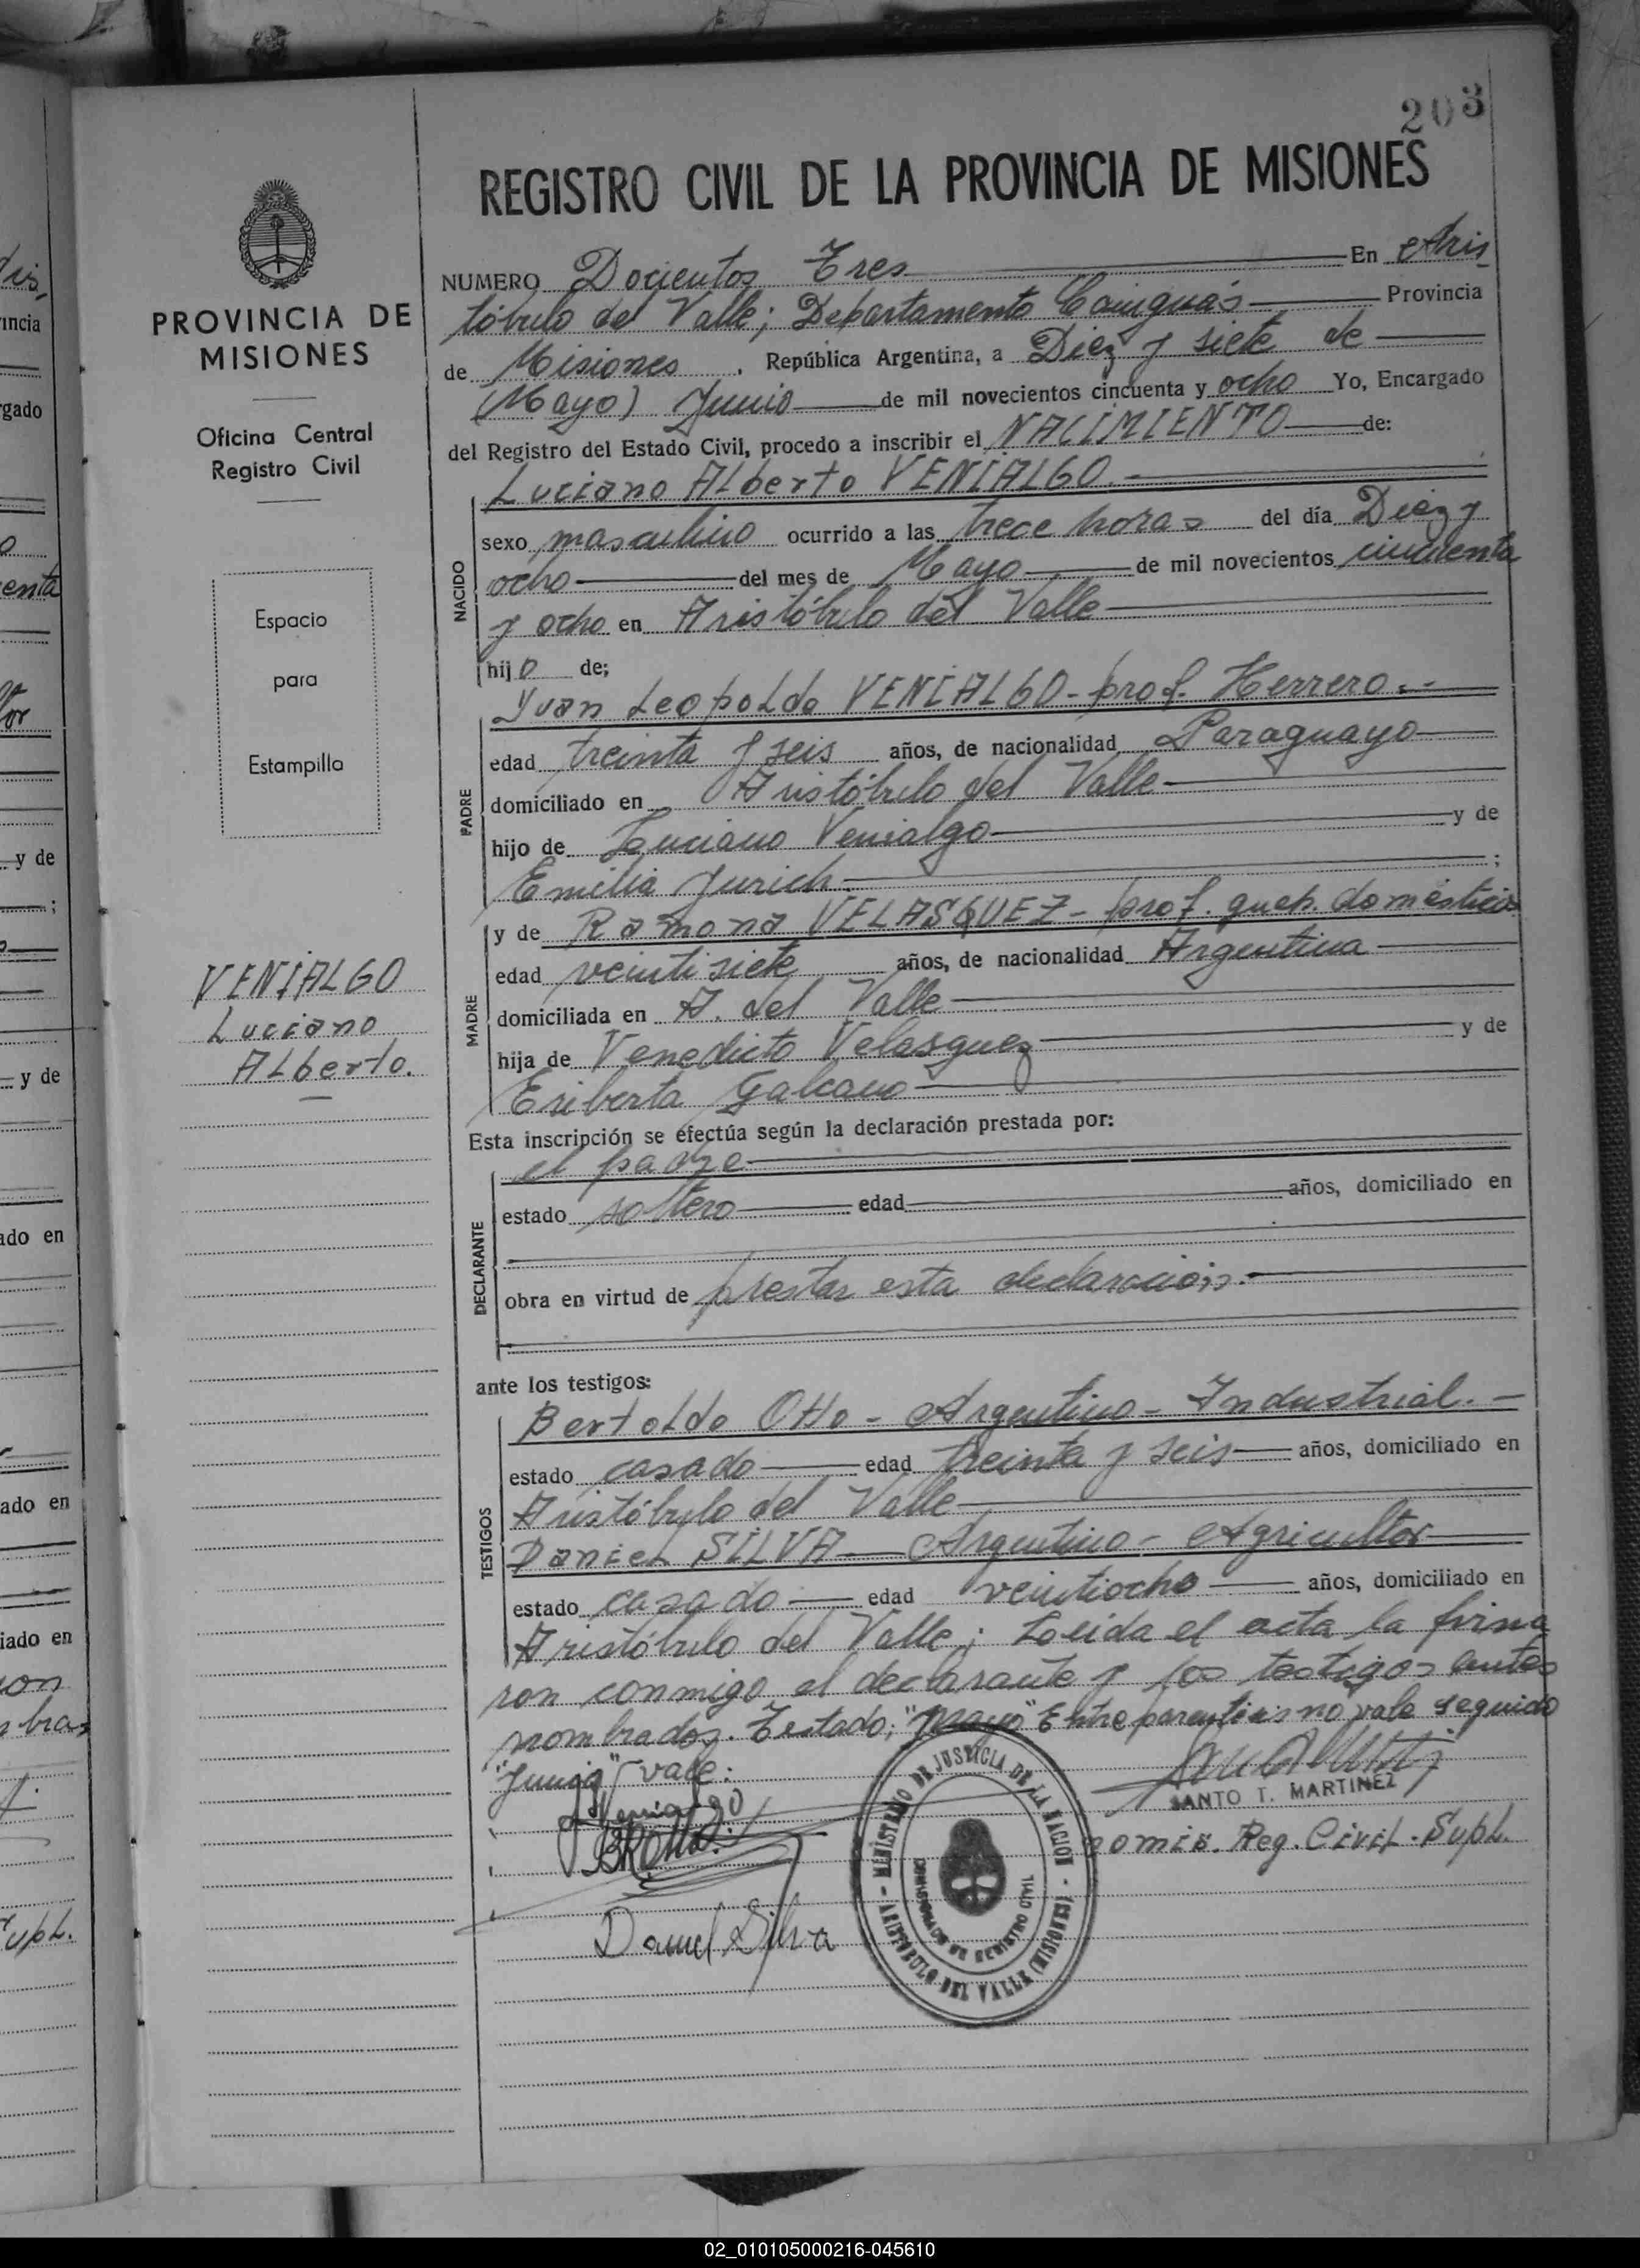 203
REGISTRO CIVIL DE LA PROVINCIA DE MISIONES
PROVINCIA DE
MISIONES
Oficina Central
Registro Civil
Espacio
para
Estampilla
VENIALGO
Luciano
Alberto.
NUMERO Docientos Tres En Aris
tóbulo del Valle; Departamento Cainguás Provincia
de Misiones, República Argentina, a Diez y siete de
(Mayo) Junio de mil novecientos cincuenta y ocho Yo, Encargado
del Registro del Estado Civil, procedo a inscribir el NACIMIENTO de:
Luciano Alberto VENIALGO.-
NACIDO
sexo masculino ocurrido a las trece horas del día Diez y
ocho del mes de Mayo de mil novecientos cincuenta
y ocho en Aristóbulo del Valle
hijo de;
Juan Leopoldo VENIALGO - prof. Herrero.-
PADRE
edad treinta y seis años, de nacionalidad Paraguayo
domiciliado en Aristóbulo del Valle
hijo de Luciano Venialgo y de
Emilia Jurich. ;
y de Ramona VELASQUEZ - prof. queh. domésticos
MADRE
edad veintisiete años, de nacionalidad Argentina
domiciliada en A. del Valle
hija de Venedicto Velasquez y de
Eriberta Galeano
Esta inscripción se efectúa según la declaración prestada por:
el padre
DECLARANTE
estado soltero edad años, domiciliado en
obra en virtud de prestar esta declaración.-
ante los testigos:
Bertoldo Otto - Argentino - Industrial.-
TESTIGOS
estado casado edad treinta y seis años, domiciliado en
Aristóbulo del Valle
Daniel SILVA - Argentino - Agricultor
estado casado edad veintiocho años, domiciliado en
Aristóbulo del Valle; Leida el acta la firma
ron conmigo el declarante y los testigos antes
nombrados. Testado; "mayo" Entre parentisis no vale seguido
"Junio" vale:
SANTO T. MARTINEZ
Comis. Reg. Civil. Supl.
Venialgo
Daniel Silva
MINISTERIO DE JUSTICIA DE LA NACION
ARISTOBULO DEL VALLE (MISIONES)
02_010105000216-045610